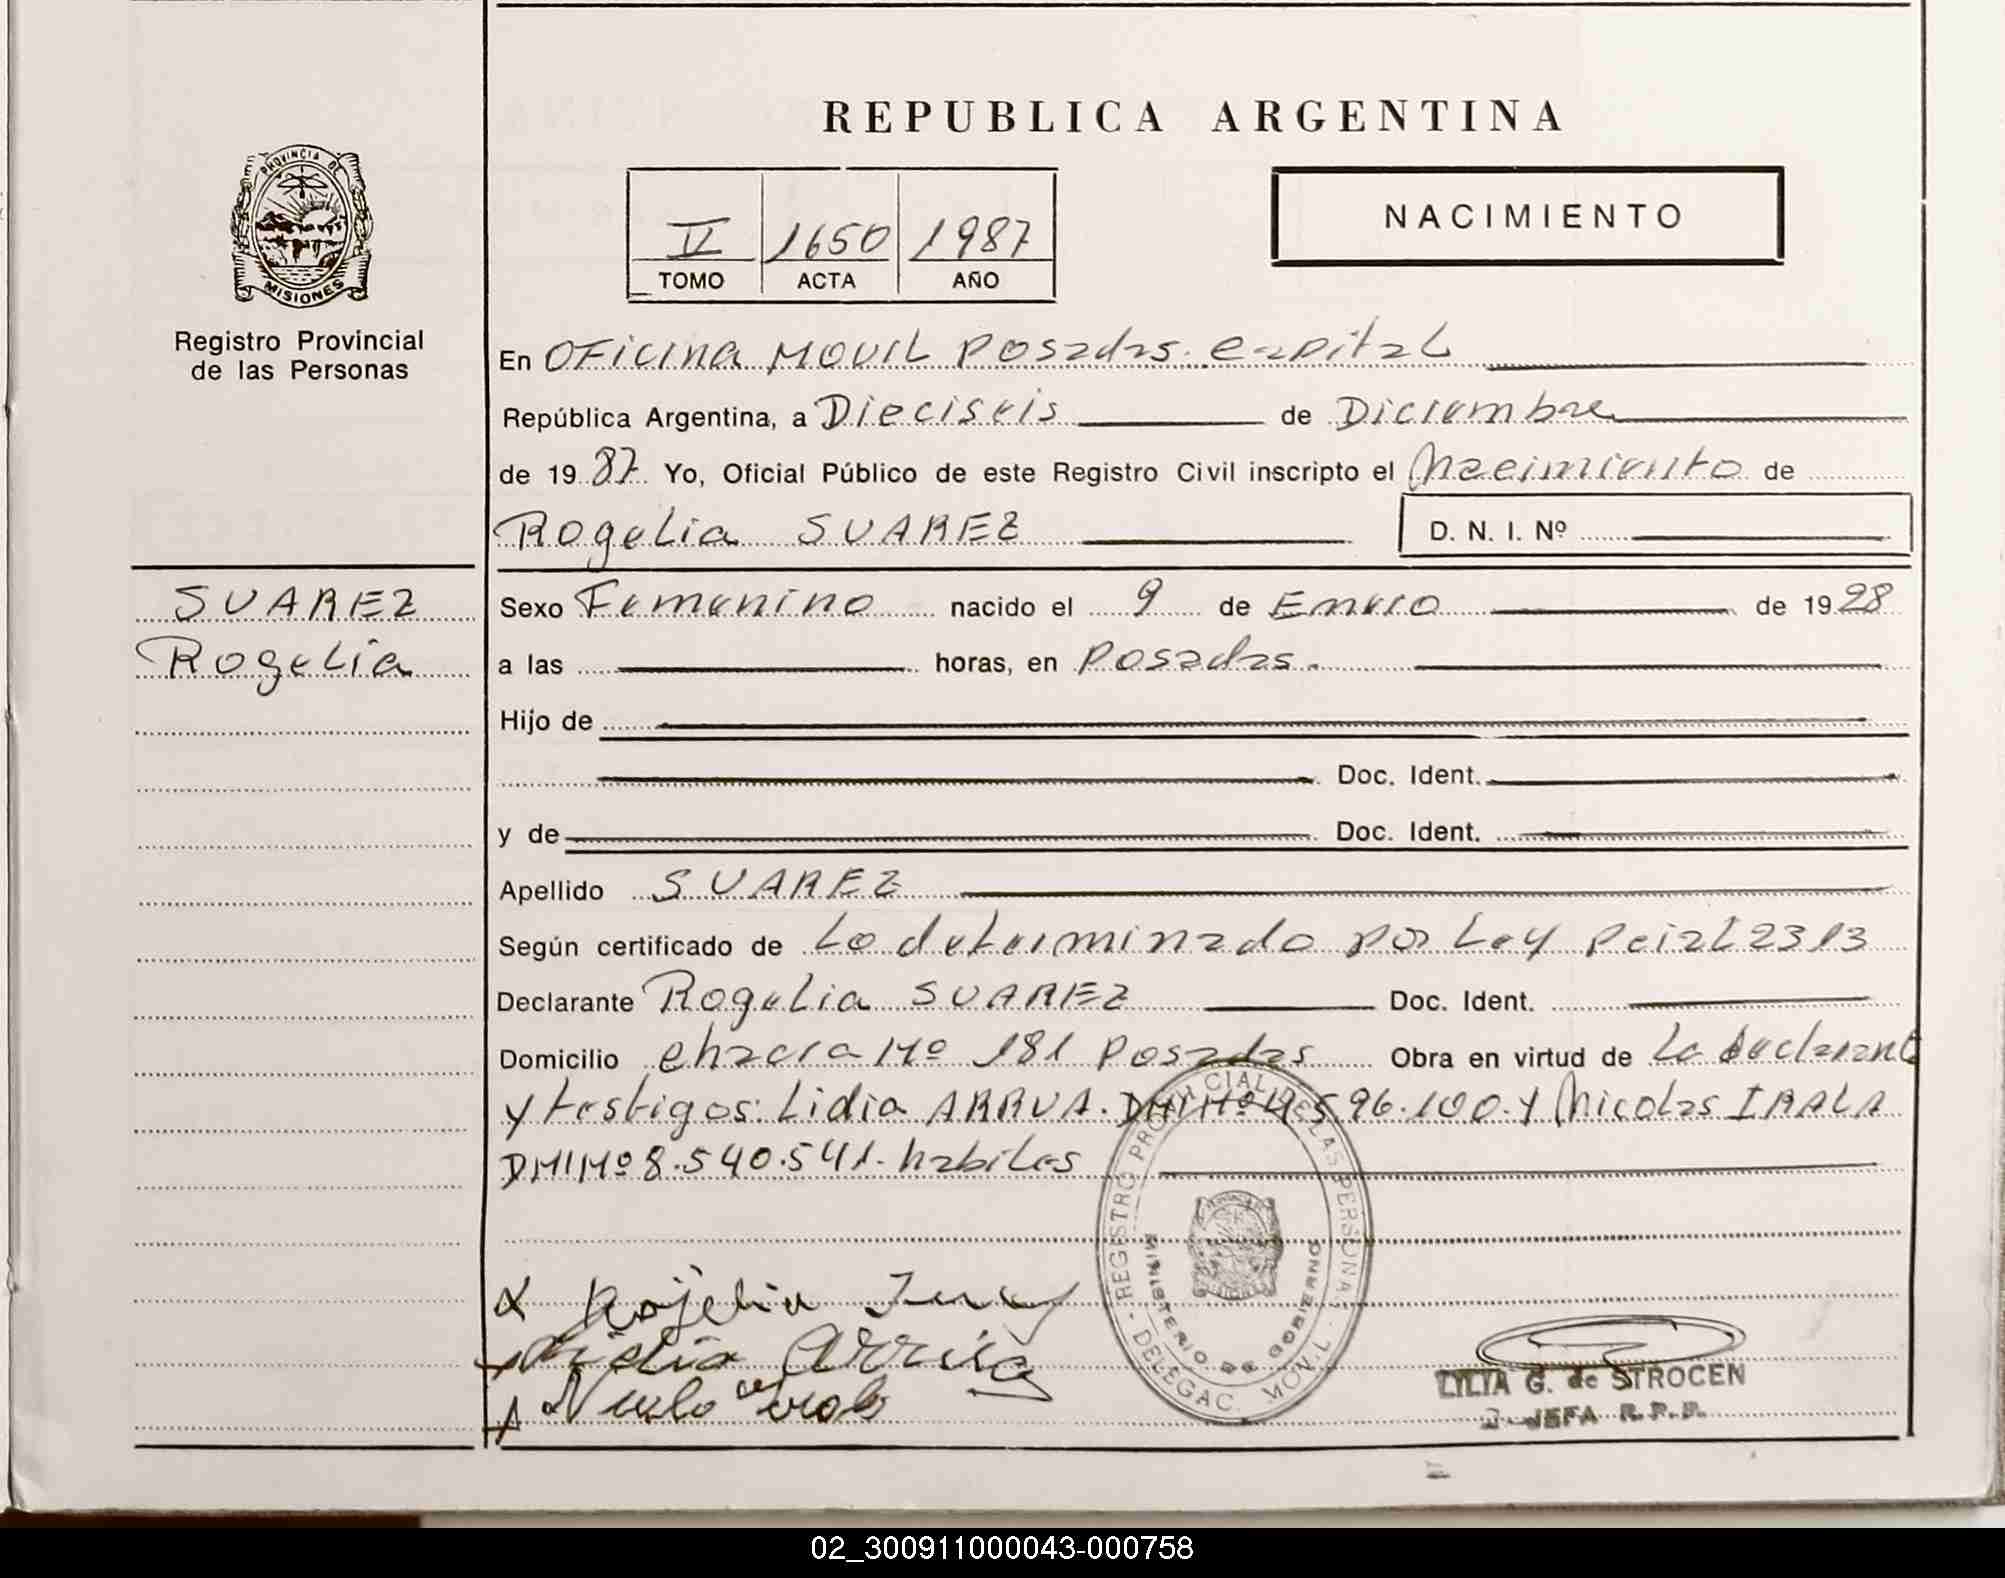 REPUBLICA ARGENTINA
PROVINCIA DE
MISIONES
Registro Provincial
de las Personas
V 1650 1987
TOMO ACTA AÑO
NACIMIENTO
En OFicina MOVIL Posadas. capital
República Argentina, a Dieciseis de Diciembre
de 1987. Yo, Oficial Público de este Registro Civil inscripto el Nacimiento de
Rogelia SUAREZ D. N. I. Nº
SUAREZ
Rogelia
Sexo Femenino nacido el 9 de Enero de 1928
a las horas, en Posadas.
Hijo de
Doc. Ident.
y de Doc. Ident.
Apellido SUAREZ
Según certificado de Lo determinado por Ley Pcial 2313
Declarante Rogelia SUAREZ Doc. Ident.
Domicilio chacra Nº 181 Posadas Obra en virtud de La declarante
y testigos: Lidia ARRUA. DNI Nº 4.596.100. y Nicolas IRALA
DNI Nº 8.540.541. habiles
REGISTRO PROVINCIAL DE LAS PERSONAS
MINISTERIO DE GOBIERNO
DELEGAC. MOVIL
Rojelia
Lidia Arrua
LYLIA G. de STROCEN
JEFA R.P.P.
02_300911000043-000758